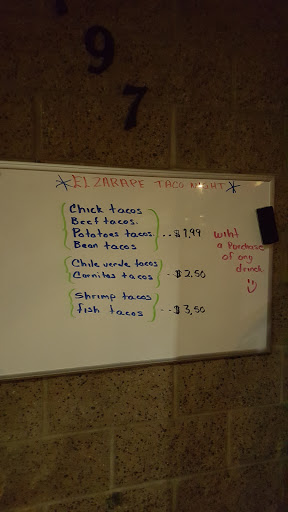 97
*EL ZARAPE TACO NIGHT*
Chick tacos
Beef tacos.
Potatoes tacos. .. $ 1,99
Bean tacos
Chile verde tacos
Carnitas tacos .. $ 2.50
shrimp tacos
fish tacos .. $ 3,50
wiht
a Porchase
of any
drinck.